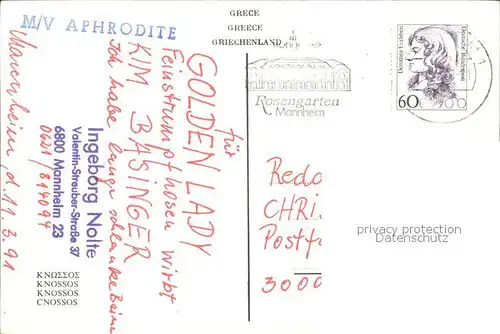 M/V APHRODITE
GRECE
GREECE
GRIECHENLAND
Rosengarten
Mannheim
Dorothea Erxleben
Deutsche Bundespost
60
Mannheim, d. 11.3.91
Ich habe lange schlanke Beine
KIM BASINGER
Feinstrumpfhosen wirbt
GOLDEN LADY
für
Ingeborg Nolte
Valentin-Streuber-Straße 37
6800 Mannheim 23
0621/814094
Reda
CHRI
Postf
3000
privacy protection
Datenschutz
ΚΝΩΣΣΟΣ
KNOSSOS
KNOSSOS
CNOSSOS